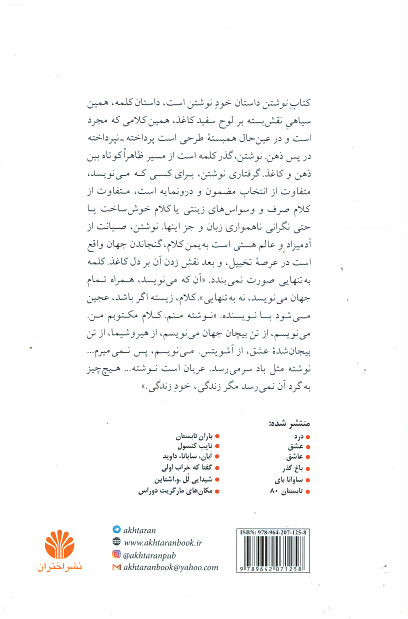 کتاب نوشتن داستان خود نوشتن است، داستان کلمه، همین
سیاهیِ نقش‌بسته بر لوح سفید کاغذ، همین کلامی که مجرد
است و در عین‌حال همبستهٔ طرحی است پرداخته ـ نپرداخته
در پس ذهن. نوشتن، گذر کلمه است از مسیر ظاهراً کوتاه بین
ذهن و کاغذ. گرفتاری نوشتن، برای کسی که می‌نویسد،
متفاوت از انتخاب مضمون و درونمایه است، متفاوت از
کلام صرف و وسواس‌های زینتی یا کلام خوش‌ساخت یا
حتی نگرانی ناهمواری زبان و جز اینها. نوشتن، صیانت از
آدمیزاد و عالم هستی است به‌یمن کلام، گنجاندن جهان واقع
است در عرصهٔ تخییل، و بعد نقش زدن آن بر دل کاغذ. کلمه
به‌تنهایی صورت نمی‌بندد. «آن که می‌نویسد، همراه تمام
جهان می‌نویسد، نه به‌تنهایی». کلام، زیسته اگر باشد، عجین
می‌شود با نویسنده. «نوشته منم. کلام مکتوبم من.
می‌نویسم، از تن بیجان جهان می‌نویسم، از هیروشیما، از تن
بیجان‌شدهٔ عشق، از آشویتس. می‌نویسم، پس نمی‌میرم...
نوشته مثل باد سرمی‌رسد. عریان است نوشته... هیچ‌چیز
به گرد آن نمی‌رسد مگر زندگی، خودِ زندگی.»
منتشر شده:
• درد
• عشق
• عاشق
• باغ گذر
• ساوانا بای
• تابستان ۸۰
• باران تابستان
• نایب کنسول
• ابان، سابانا، داوید
• گفتا که خراب اولی
• شیدایی لُل و. اشتاین
• مکان‌های مارگریت دوراس
akhtaran
www.akhtaranbook.ir
@akhtaranpub
akhtaranbook@yahoo.com
ISBN: 978-964-207-125-8
9 789642 071258
نشر اختران